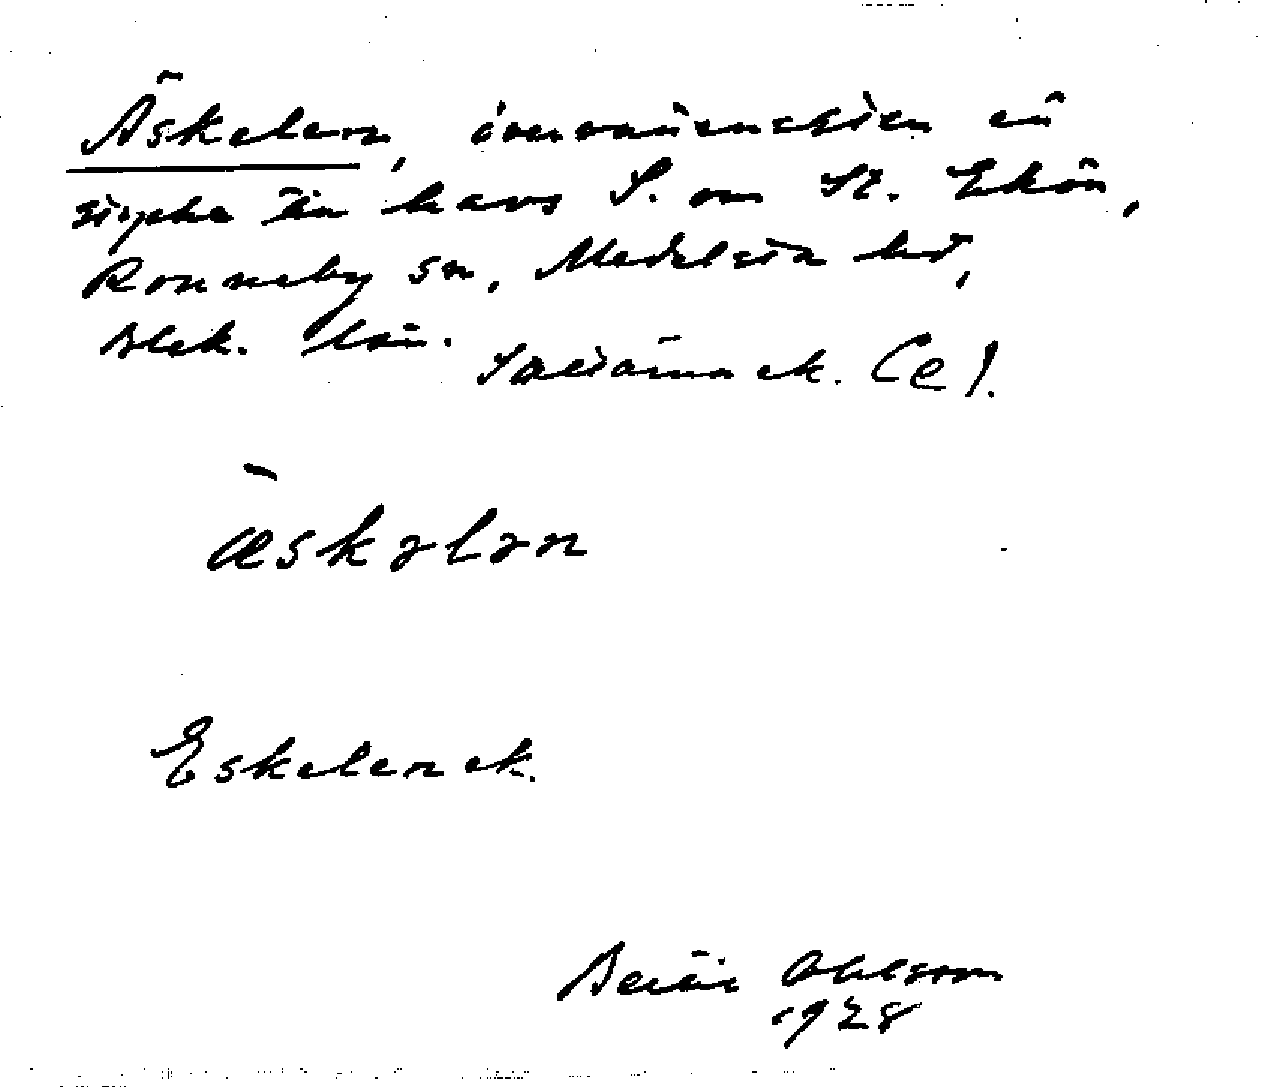 Äskelen, övervattensten
till havs S. om St. Ekön,
Ronneby sn, Medelsta hd,
Blek. län.
Sattärna ek. (e).
æskələn
Eskelen ek.
Bertil Ohlsson
1928